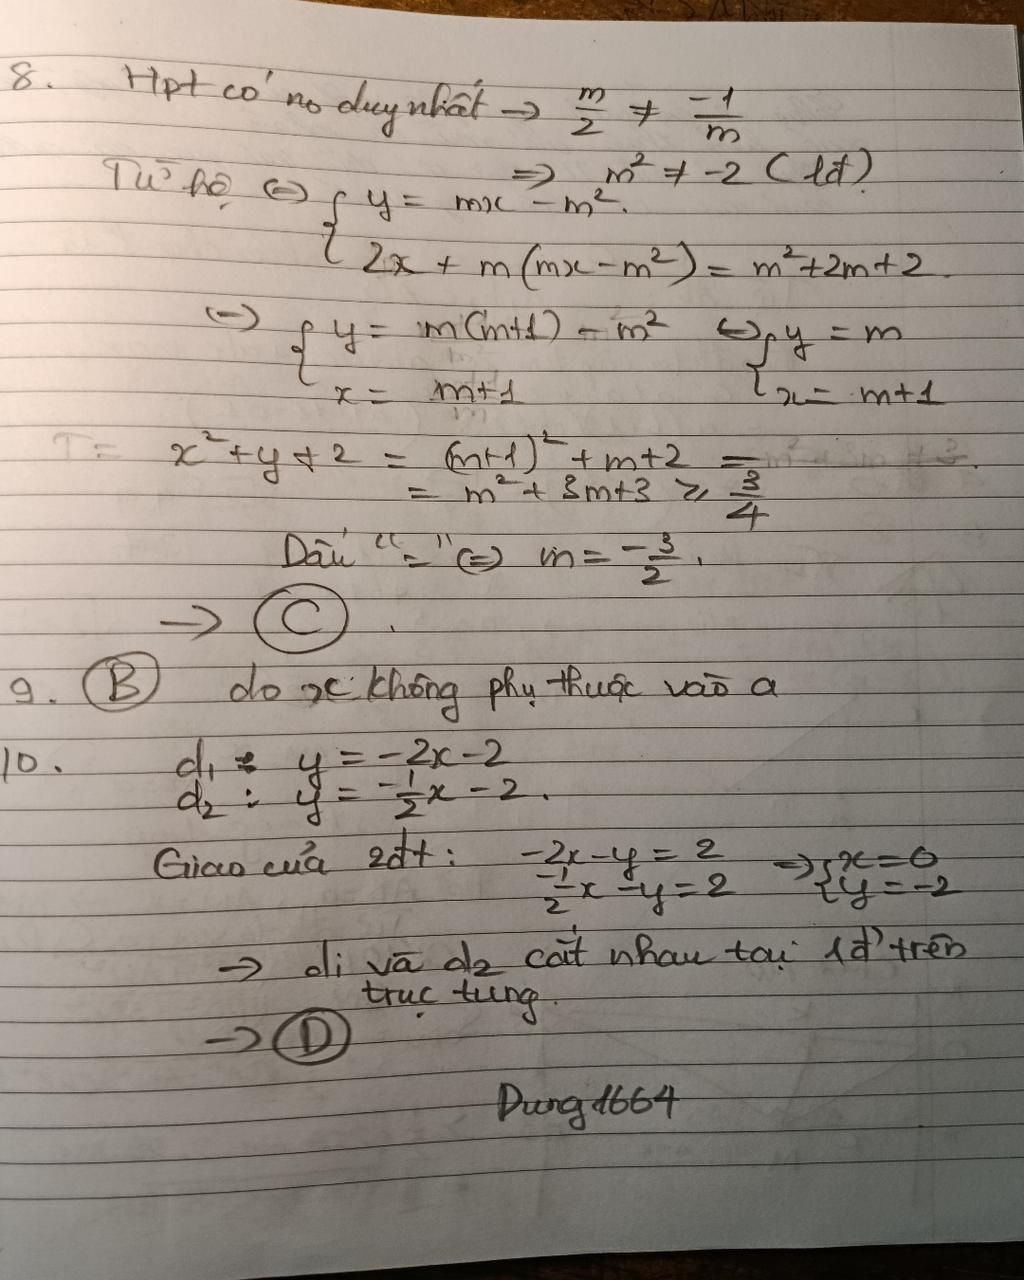 8. Hpt có no duy nhất → m/2 ≠ -1/m
⇒ m² ≠ -2 (lđ)
Từ hệ ⇔ { y = mx - m².
2x + m(mx - m²) = m² + 2m + 2.
⇔ { y = m(m+1) - m² ⇔ { y = m
x = m+1 x = m+1
T = x² + y + 2 = (m+1)² + m + 2 =
= m² + 3m + 3 ≥ 3/4
Dấu "=" ⇔ m = -3/2.
→ C.
9. B do x không phụ thuộc vào a
10. d₁ : y = -2x - 2
d₂ : y = -1/2 x - 2.
Giao của 2đt : -2x - y = 2 ⇒ { x = 0
-1/2 x - y = 2 y = -2
→ d₁ và d₂ cắt nhau tại 1đ' trên
trục tung.
→ D
Dung1664